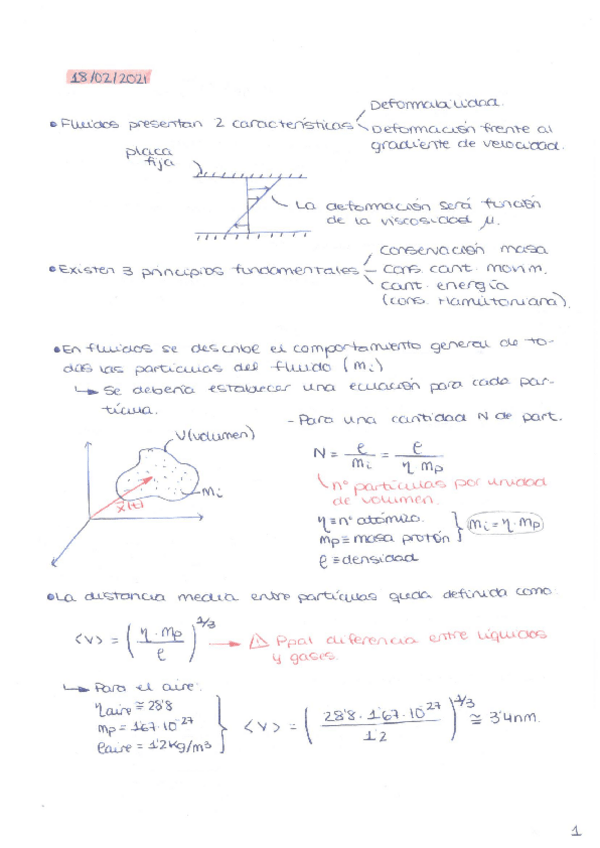 18/02/2021
• Fluidos presentan 2 características
Deformabilidad.
Deformación frente al
gradiente de velocidad.
placa
fija
La deformación será función
de la viscosidad μ.
• Existen 3 principios fundamentales
conservación masa
cons. cant. movim.
cant. energía
(cons. Hamiltoniana).
• En fluidos se describe el comportamiento general de to-
das las partículas del fluido (mi)
↳ Se debería establecer una ecuación para cada par-
tícula.
V(volumen)
mi
x̄(t)
- Para una cantidad N de part.
N = ρ/mi = ρ/(η mp)
nº partículas por unidad
de volumen.
η ≡ nº atómico.
mp ≡ masa protón
ρ ≡ densidad
mi = η · mp
• La distancia media entre partículas queda definida como:
<v> = (η · mp / ρ)^1/3 → ⚠ Ppal diferencia entre líquidos
y gases.
↳ Para el aire:
ηaire ≅ 28'8
mp = 1'67·10^-27
ρaire = 1'2 kg/m3
<v> = (28'8 · 1'67 · 10^-27 / 1'2)^1/3 ≅ 3'4nm.
1